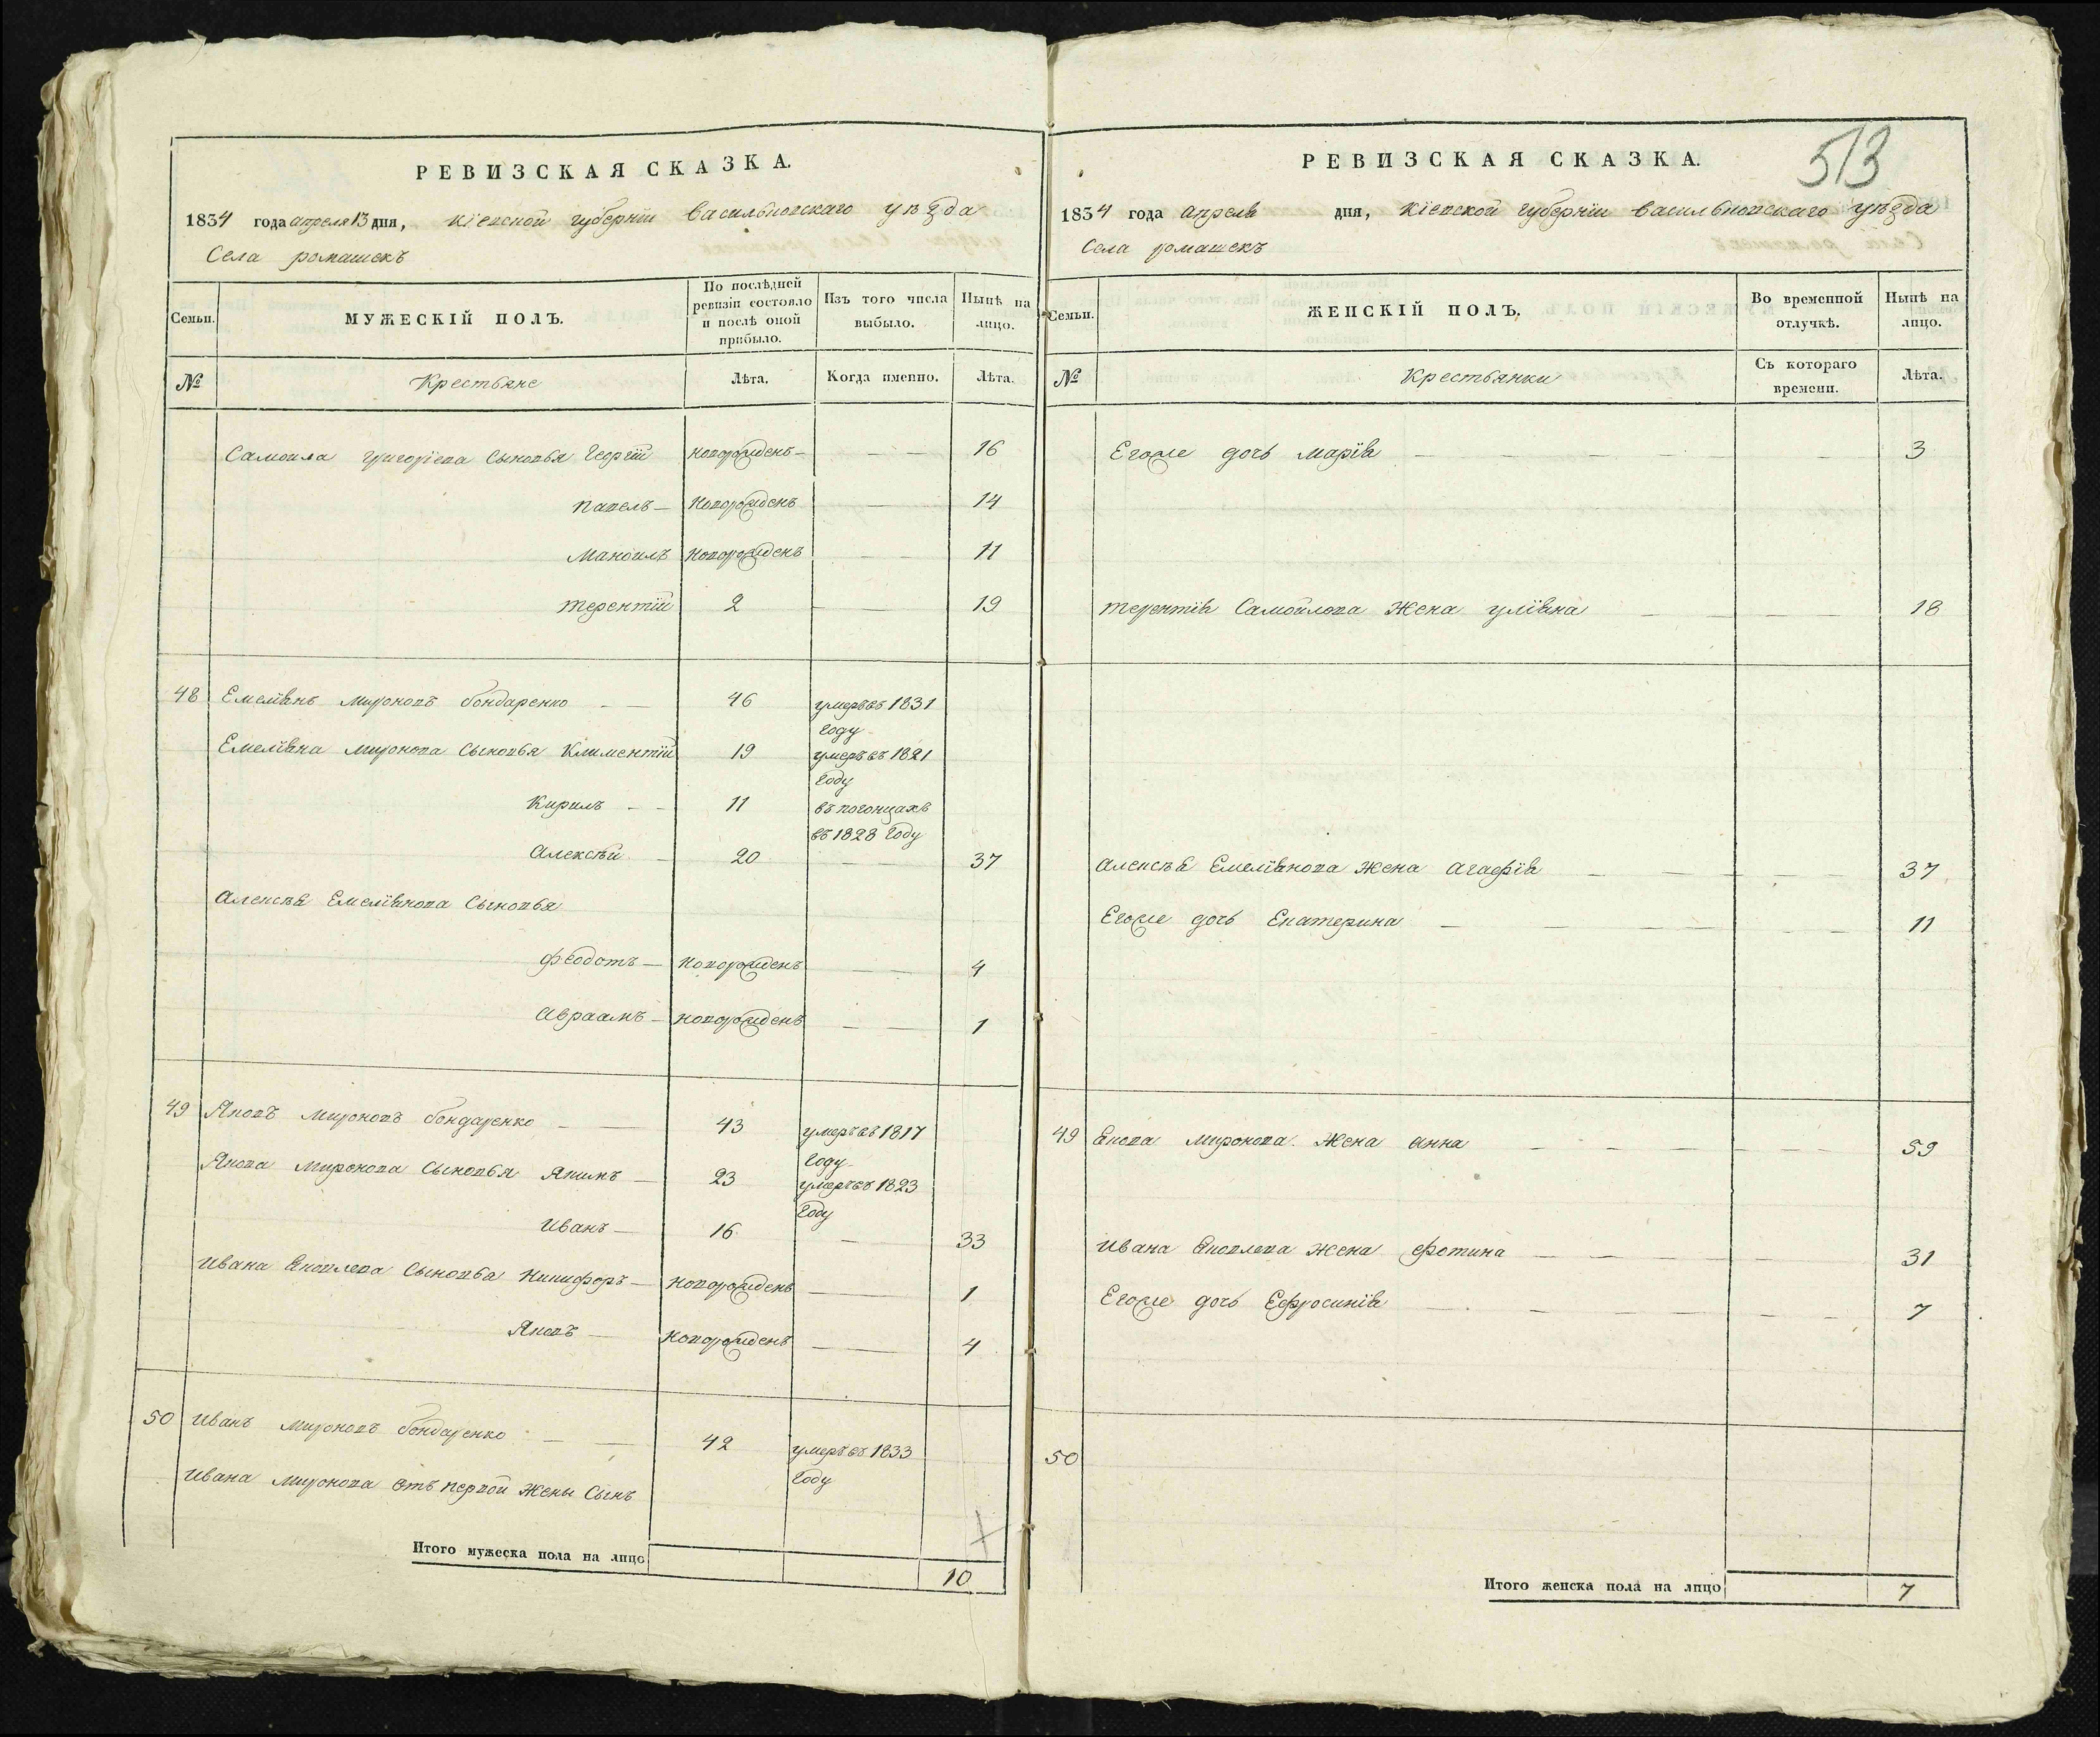 РЕВИЗСКАЯ СКАЗКА.
1834 года апреля 13 дня, Кіевской губерніи васильковскаго уѣзда
Села ромашекъ
Семьи.
МУЖЕСКІЙ ПОЛЪ.
По послѣдней ревизіи состояло и послѣ оной прибыло.
Изъ того числа выбыло.
Нынѣ на лицо.
№
Крестьяне
Лѣта.
Когда именно.
Лѣта.
Самоила григоріева Сыновья Георгій новорожденъ — — 16
павелъ — новорожденъ — — 14
Маноилъ новорожденъ — — 11
терентій 2 — — 19
48 Емеліянъ Мироновъ бондаренко — — 46 умеръ въ 1831 году
Емеліяна миронова Сыновья Климентій 19 умеръ въ 1821 году
Кирилъ — — 11 въ погонцахъ въ 1828 году
Алексѣй — 20 — — 37
Алексѣя Емеліянова Сыновья
Феодотъ — новорожденъ — — 4
Авраамъ — новорожденъ — — 1
49 Яковъ Мироновъ бондаренко — — 43 умеръ въ 1817 году
Якова миронова Сыновья Якимъ — 23 умеръ въ 1823 году
Иванъ — 16 — 33
Ивана Яковлева Сыновья Никифоръ — новорожденъ — — 1
Яковъ — новорожденъ — — 4
50 Иванъ Мироновъ бондаренко — — 42 умеръ въ 1833 году
Ивана миронова отъ первой жены Сынъ
Итого мужеска пола на лицо 10
513
РЕВИЗСКАЯ СКАЗКА.
1834 года апреля дня, Кіевской губерніи васильковскаго уѣзда
Села ромашекъ
Семьи.
ЖЕНСКІЙ ПОЛЪ.
Во временной отлучкѣ.
Нынѣ на лицо.
№
Крестьянки
Съ котораго времени.
Лѣта.
Егоже дочь марія — — — — — — 3
терентія Самойлова жена уліяна — — — — 18
Алексѣя Емеліянова жена агафія — — — — — 37
Егоже дочь Екатерина — — — — — — 11
49 Якова миронова жена анна — — — — — — 59
Ивана Яковлева жена фотина — — — — 31
Егоже дочь Ефросинія — — — — — — 7
50
Итого женска пола на лицо 7